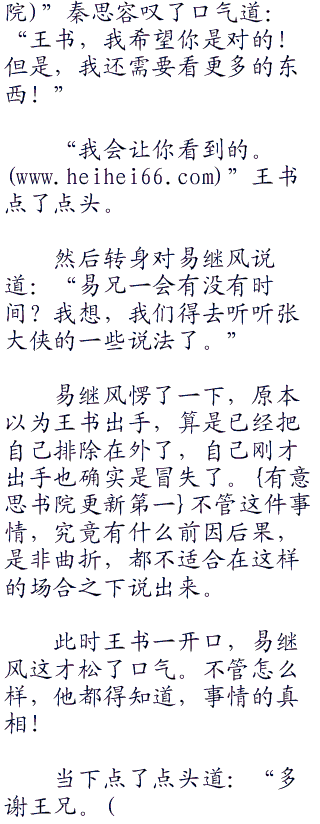 院)”秦思容叹了口气道：
“王书，我希望你是对的！
但是，我还需要看更多的东
西！”
“我会让你看到的。
(www.heihei66.com)”王书
点了点头。
然后转身对易继风说
道：“易兄一会有没有时
间？我想，我们得去听听张
大侠的一些说法了。”
易继风愣了一下，原本
以为王书出手，算是已经把
自己排除在外了，自己刚才
出手也确实是冒失了。{有意
思书院更新第一}不管这件事
情，究竟有什么前因后果，
是非曲折，都不适合在这样
的场合之下说出来。
此时王书一开口，易继
风这才松了口气。不管怎么
样，他都得知道，事情的真
相！
当下点了点头道：“多
谢王兄。(